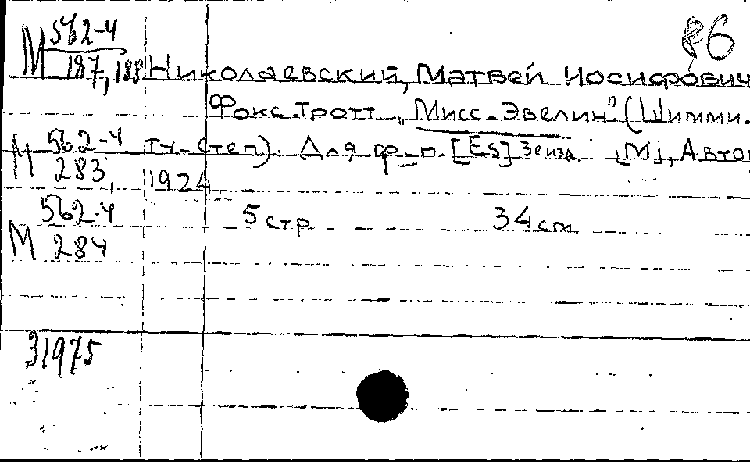 86
М 562-4
187, 188 Николаевский, Матвей Иосифович
Фокс-тротт „Мисс-Эвелин" (Шимми.
М 562-4 ту-степ). Для ф.-п. [Es] Зенза [М], Авто
283, 1924
562-4 5 стр 34 см
М 284
31975